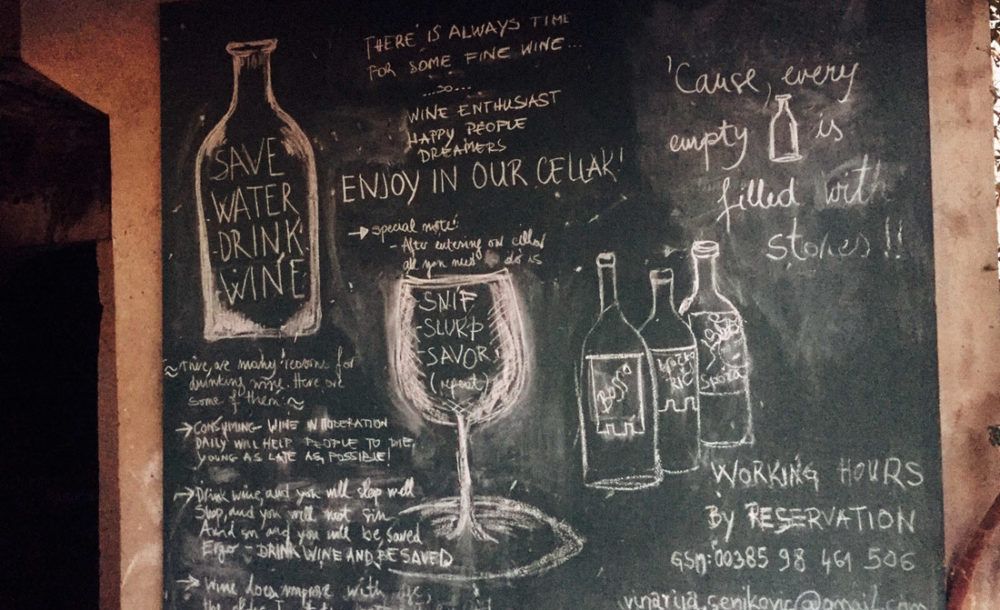 SAVE
WATER
DRINK
WINE
THERE IS ALWAYS TIME
FOR SOME FINE WINE...
...SO...
WINE ENTHUSIAST
HAPPY PEOPLE
DREAMERS
ENJOY IN OUR CELLAR!
special note:
- After entering our cellar
all you need to do is
SNIF
-SLURP
-SAVOR
(repeat)
'Cause, every
empty is
filled with
stories!!
There are many reasons for
drinking wine. Here are
some of them:
CONSUMING WINE IN MODERATION
DAILY WILL HELP PEOPLE TO DIE
YOUNG AS LATE AS POSSIBLE!
Drink wine, and you will sleep well
Sleep, and you will not sin
Avoid sin and you will be saved
Ergo - DRINK WINE AND BE SAVED
Wine does improve with age,
the older I
WORKING HOURS
By RESERVATION
GSM: 00385 98 461 506
vinarija.senjkovic@gmail.com